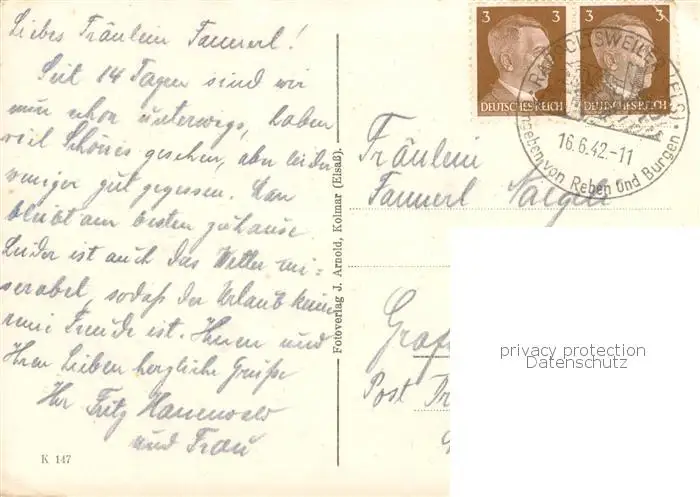 Liebes Fräulein Fannerl!
Seit 14 Tagen sind wir
nun schon unterwegs, haben
viel Schönes gesehen, aber leider
weniger gut gegessen. Man
bleibt am besten zuhause.
Leider ist auch das Wetter mi=
serabel, sodaß der Urlaub keine
reine Freude ist. Ihnen und
Ihren Lieben herzliche Grüße
Ihr Fritz
und Frau
K 147
Fotoverlag J. Arnold, Kolmar (Elsaß).
3 3 3 3
DEUTSCHES REICH DEUTSCHES REICH
RAPPOLTSWEILER (ELS)
16.6.42.-11
umgeben von Reben und Burgen
Fräulein
Fannerl
Graf
Post
privacy protection
Datenschutz